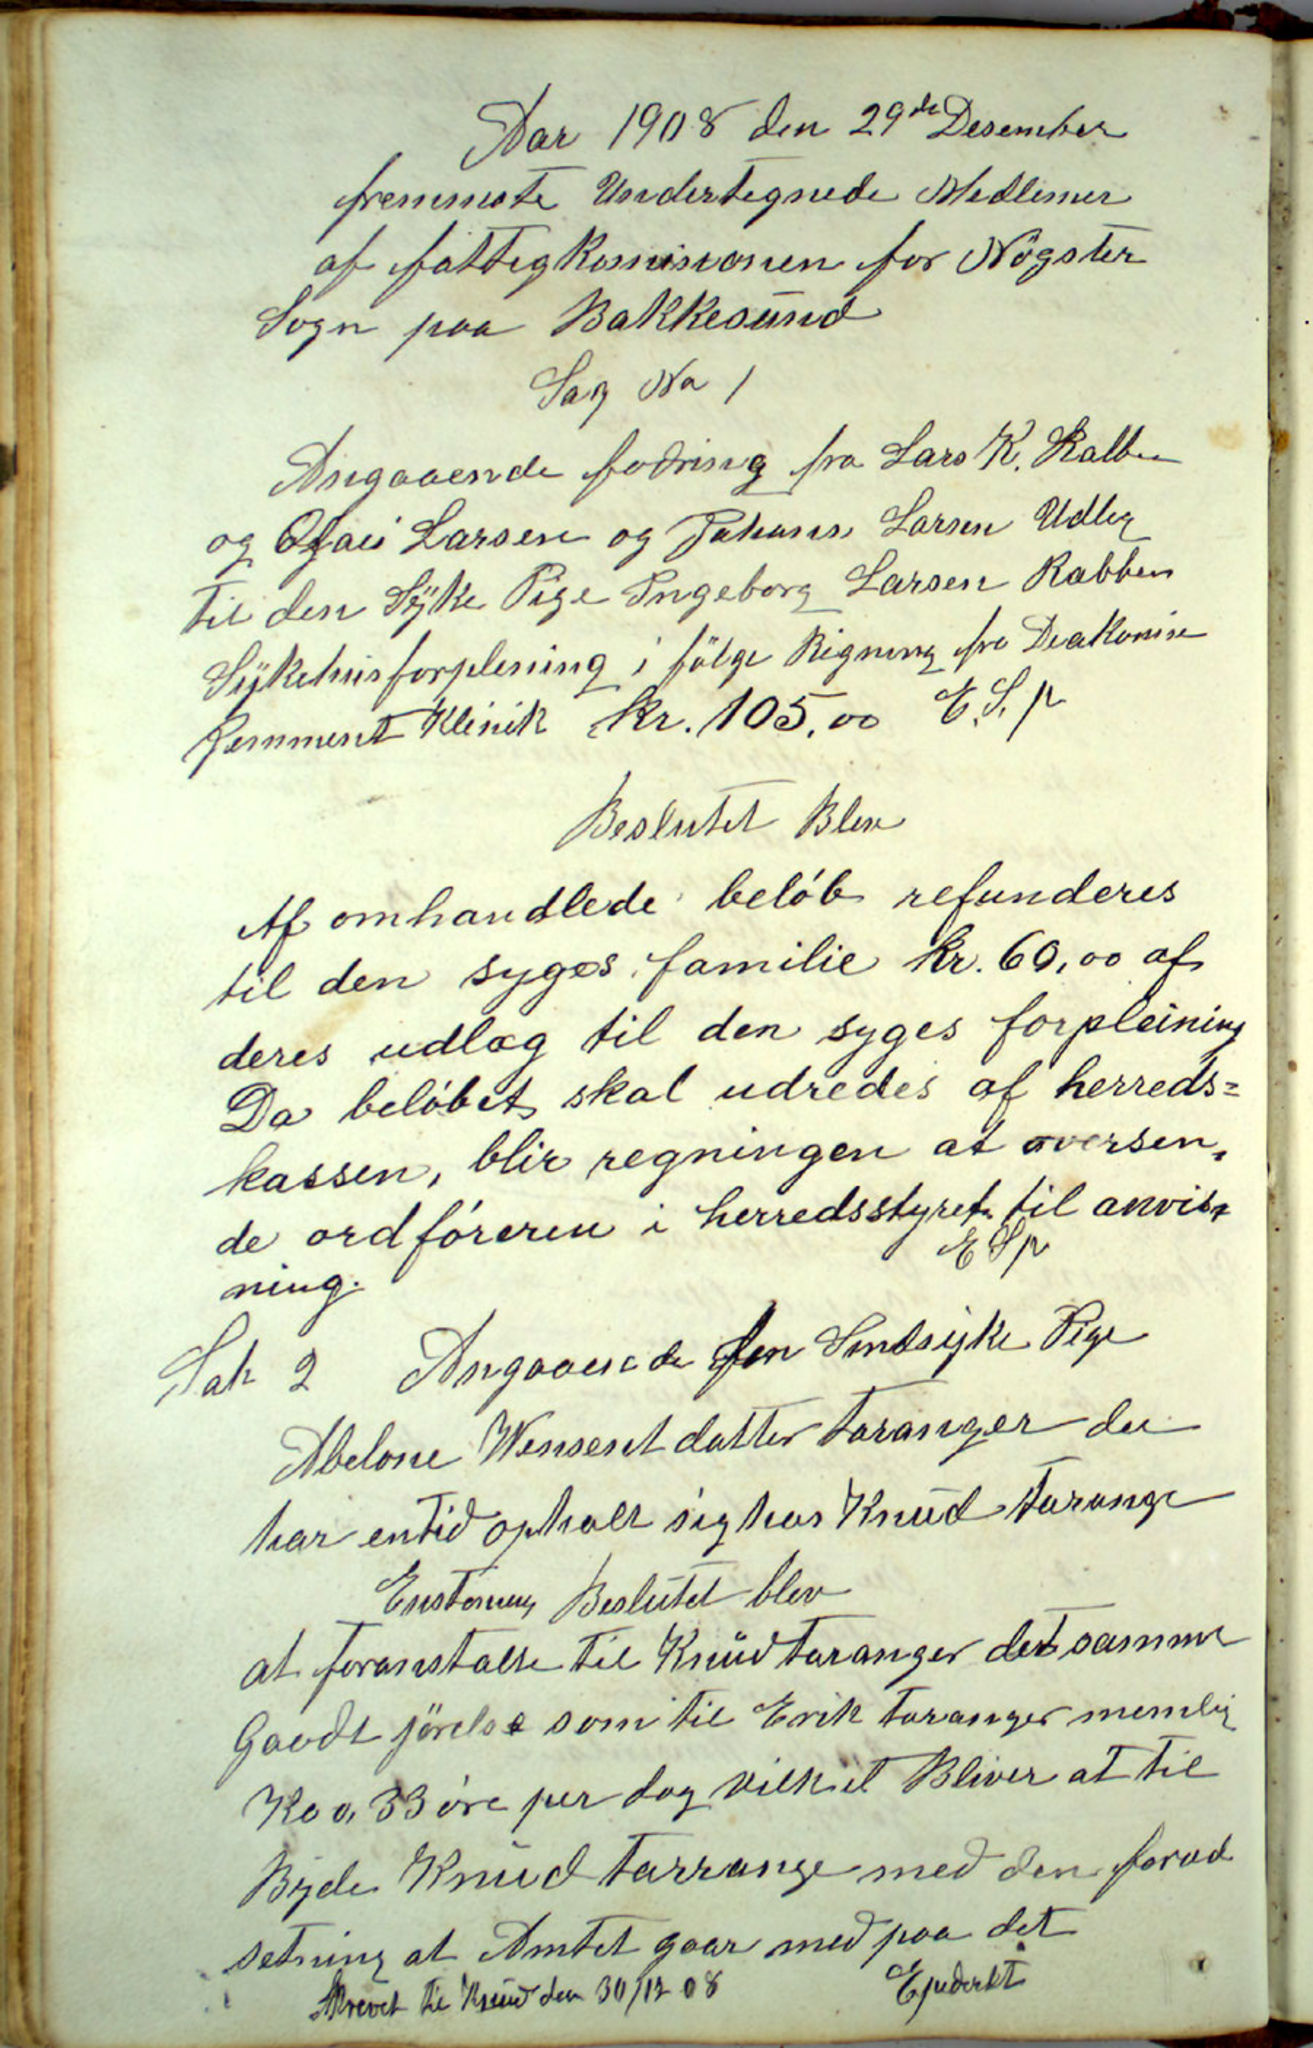 Aar 1908 den 29de Desember
fremmøte Undertegnede Medlemer
af fattigkomisionen for Nögster
Sogn paa Bakkesund
Sag No 1
Angaaende fodring fra Lars K. Rabben
og Larsen og Johans Larsen Udleg
til den Syke Pige Ingeborg Larsen Rabben
Sykehusforplening i følge Rigning fra Diakonise
Klinik kr. 105,00 E. S. p
Beslutet Blev
Af omhandlede beløb refunderes
til den syges familie kr. 60,00 af
deres udlæg til den syges forpleining
Da beløbet skal udredes af herreds=
kassen, blir regningen at oversen,
de ordføreren i herredsstyret til anvis,
ning. E S p
Sak 2 Angaaende den Sindsyke Pige
Abelone Wensent datter Taranger der
har entid opholt sig hos Knud Tarange
Enstemig Beslutet blev
at foranstalte til Knud Taranger det samme
Goodt jörelse som til Erik Taranger nemlig
Kr 0,33 øre per dag vilket Bliver at til
Byde Knud Tarrange med den forud
setning at Amtet gaar med paa det
Skrevet til Knud den 30/12 08